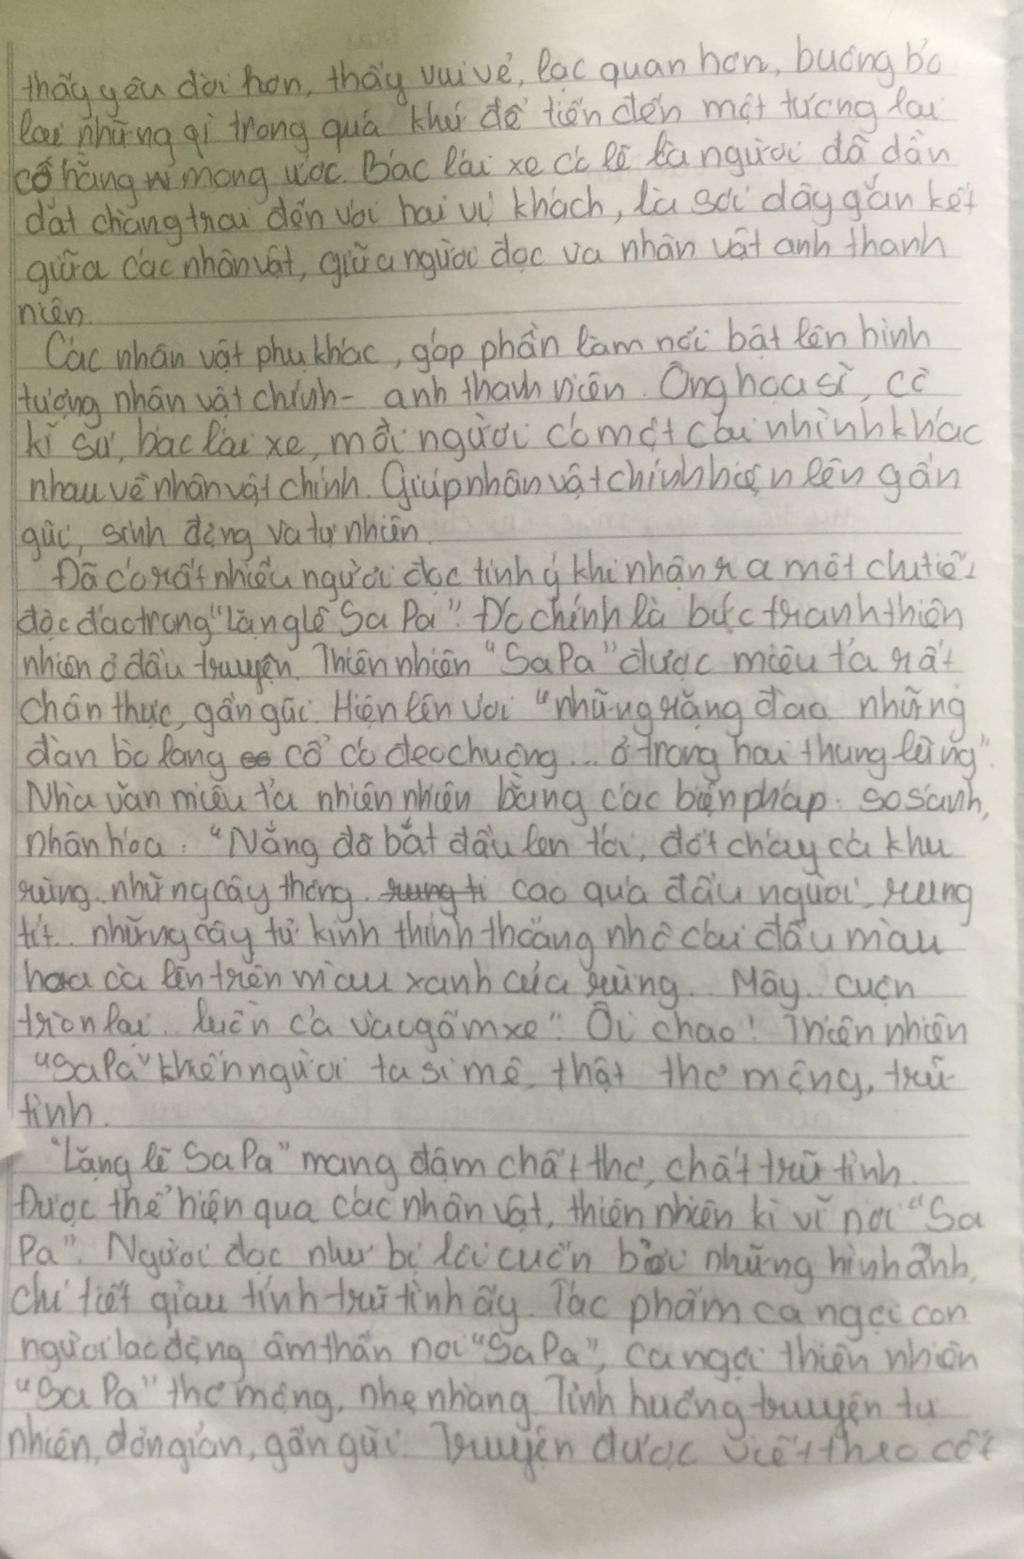 thấy yêu đời hơn, thấy vui vẻ, lạc quan hơn, buông bỏ
lại những gì trong quá khứ để tiến đến một tương lai
cô hằng mong ước. Bác lái xe có lẽ là người đã dẫn
dắt chàng trai đến với hai vị khách, là sợi dây gắn kết
giữa các nhân vật, giữa người đọc và nhân vật anh thanh
niên.
Các nhân vật phụ khác, góp phần làm nổi bật lên hình
tượng nhân vật chính - anh thanh niên. Ông họa sĩ, cô
kĩ sư, bác lái xe, mỗi người có một cái nhìnhkhác
nhau về nhân vật chính. Giúp nhân vật chính hiện lên gần
gũi, sinh động và tự nhiên.
Đã có rất nhiều người đọc tinh ý khi nhận ra một chi tiết
độc đáo trong "lặng lẽ Sa Pa". Đó chính là bức tranh thiên
nhiên ở đầu truyện. Thiên nhiên "Sa Pa" được miêu tả rất
chân thực, gần gũi. Hiện lên với "những rặng đào những
đàn bò lang cổ có đeo chuông... ở trong hai thung lũng".
Nhà văn miêu tả nhiên nhiên bằng các biện pháp: so sánh,
nhân hóa: "Nắng đã bắt đầu len tới, đốt cháy cả khu
rừng.. những cây thông.. cao quá đầu người, rung
tít.. những cây tử kinh thỉnh thoảng nhô cái đầu màu
hoa cà lên trên màu xanh của rừng.. Mây.. cuộn
tròn lại.. luồn cả vào gầm xe". Ôi chao! Thiên nhiên
"SaPa" khiến người ta si mê, thật thơ mộng, trữ
tình.
"Lặng lẽ Sa Pa" mang đậm chất thơ, chất trữ tình.
Được thể hiện qua các nhân vật, thiên nhiên kì vĩ nơi "Sa
Pa". Người đọc như bị lôi cuốn bởi những hình ảnh,
chi tiết giàu tính trữ tình ấy. Tác phẩm ca ngợi con
người lao động âm thần nơi "Sa Pa", ca ngợi thiên nhiên
"Sa Pa" thơ mộng, nhẹ nhàng. Tình huống truyện tự
nhiên, đơn giản, gần gũi. Truyện được viết theo cốt